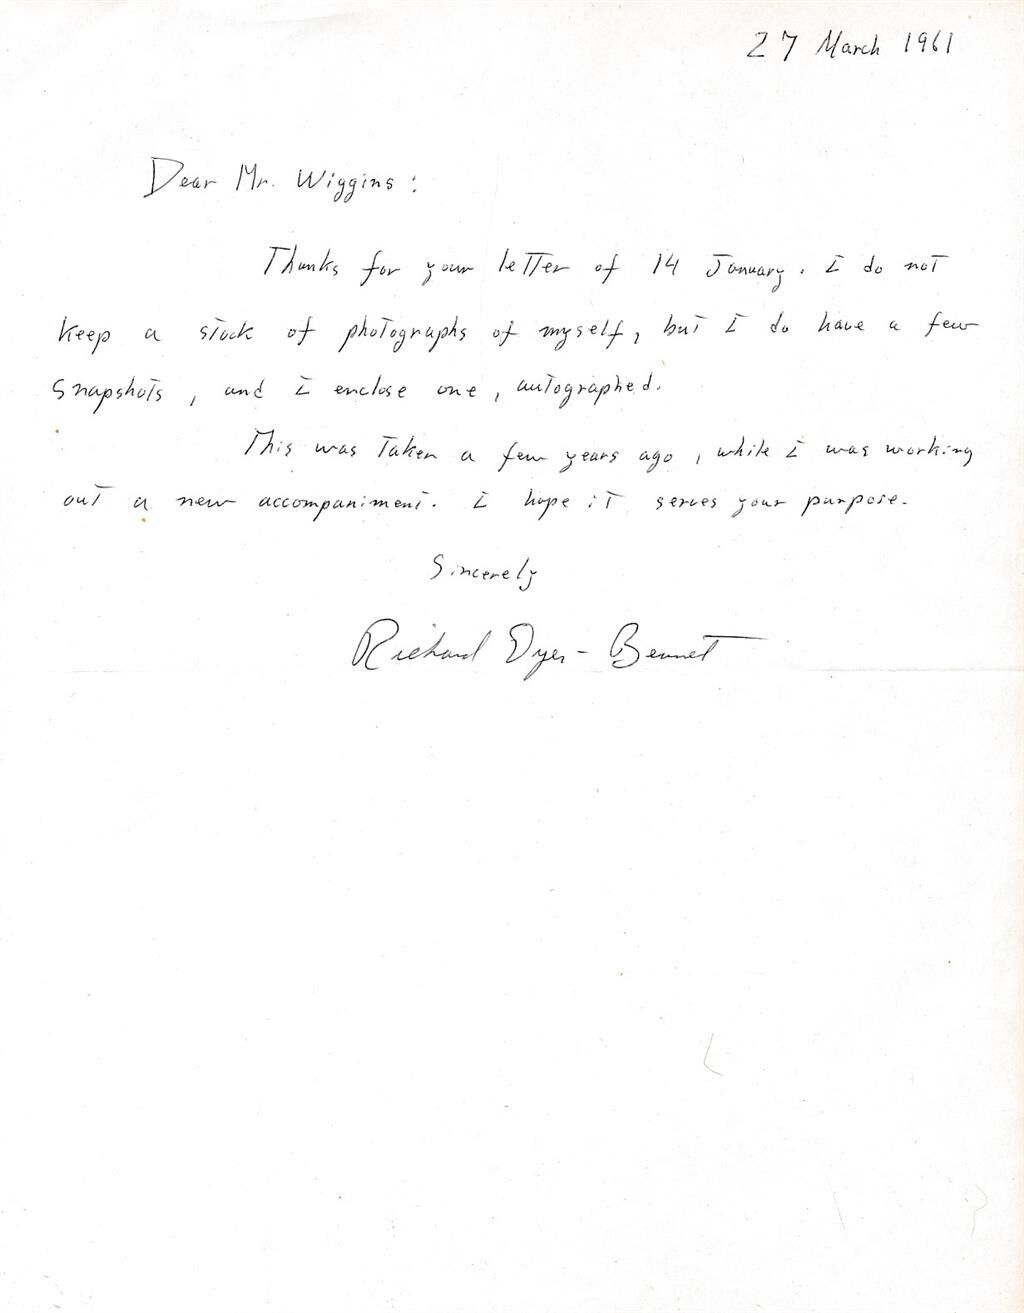 27 March 1961
Dear Mr. Wiggins:
Thanks for your letter of 14 January. I do not
keep a stock of photographs of myself, but I do have a few
snapshots, and I enclose one, autographed.
This was taken a few years ago, while I was working
out a new accompaniment. I hope it serves your purpose.
Sincerely
Richard Dyer-Bennet